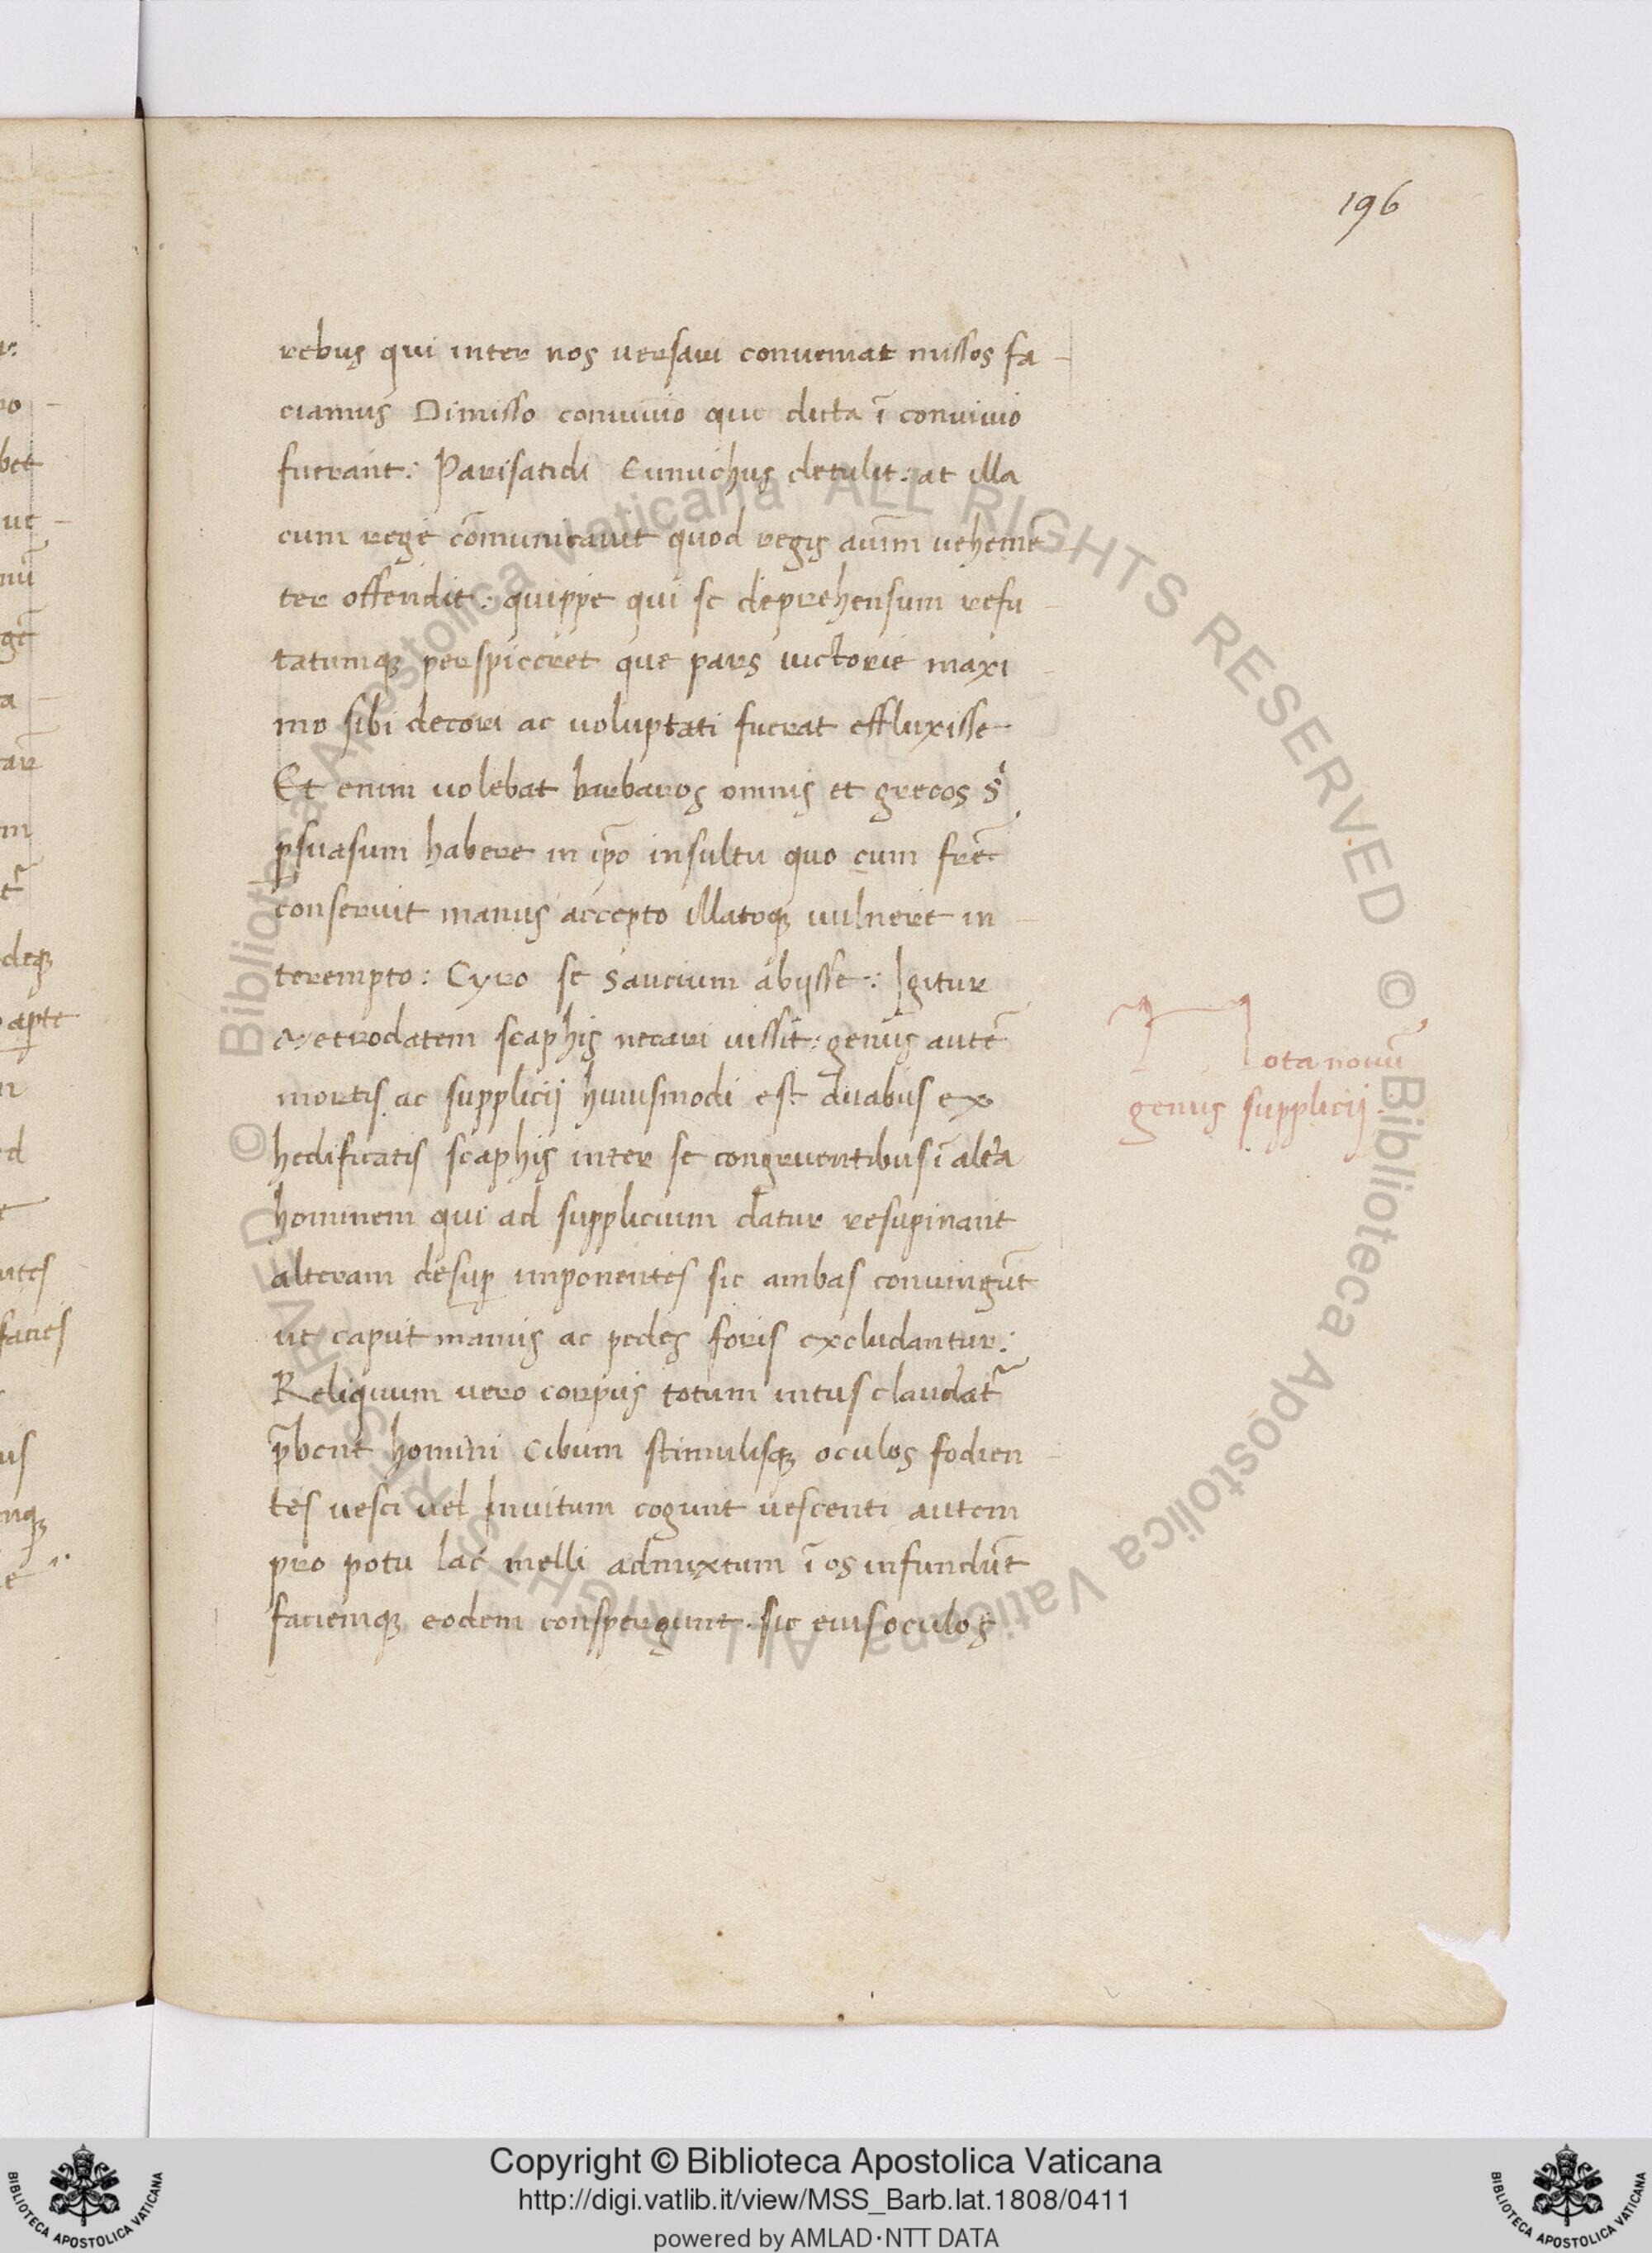 196
rebus qui inter nos uersari conueniat missos fa-
ciamus Dimisso conuiuio que dicta ī conuiuio
fuerant: Parisatidi Eunuchus detulit: at illa
cum rege cōmunicauit quod regis aīum uehemē
ter offendit: quippe qui se deprehensum refu
tatumqꝫ perspiceret que pars uictorie maxi
mo sibi decori ac uoluptati fuerat effluxisse
Et enim uolebat barbaros omnis et grecos
ꝑsuasum habere in ip̄o insultu quo cum fr̄e
conseruit manus accepto illatoqꝫ uulnere in
terempto: Cyro se saucium abijsse: Igitur
Metrodatem scaphis necari iussit: genus autē
mortis ac supplicij huiusmodi est duabus ex
hedificatis scaphis inter se congruentibus ī alt̄a
hominem qui ad supplicium datur resupinant
alteram desuꝑ imponentes sic ambas conuingūt
ut caput manus ac pedes foris excludantur:
Reliquum uero corpus totum intus claudat᷑
p̄bent homini cibum stimulisqꝫ oculos fodien
tes uesci uel Inuitum cogunt uescenti autem
pro potu lac melli admixtum ī os infundūt
faciemqꝫ eodem conspergunt. sic eius oculos
Nota nouū
genus supplicij.
Copyright © Biblioteca Apostolica Vaticana
http://digi.vatlib.it/view/MSS_Barb.lat.1808/0411
powered by AMLAD·NTT DATA